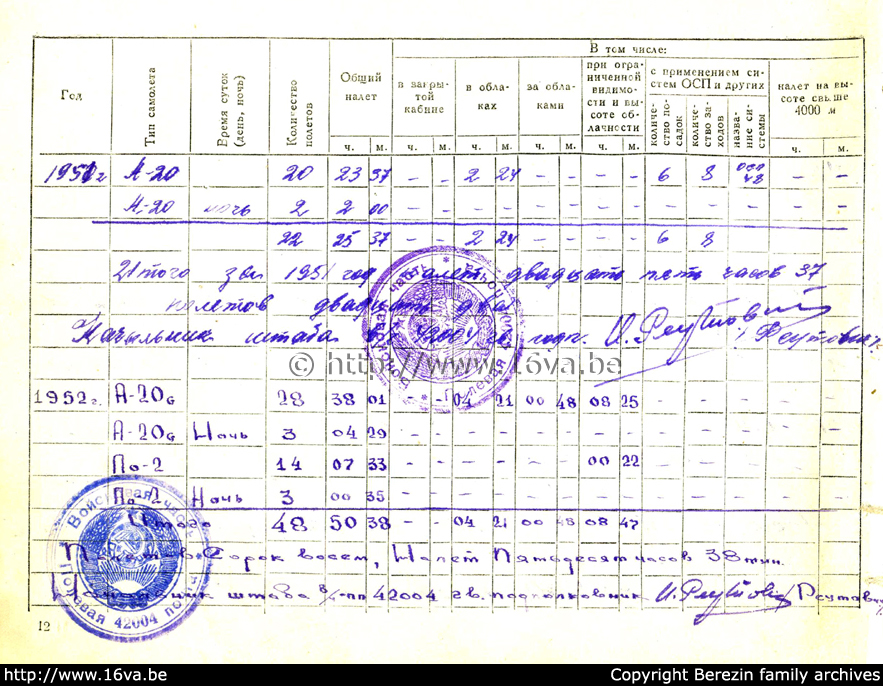 В том числе:
Год | Тип самолета | Время суток (день, ночь) | Количество полетов | Общий налет | в закрытой кабине | в облаках | за облаками | при ограниченной видимости и высоте облачности | с применением систем ОСП и других | налет на высоте свыше 4000 м
количество посадок | количество заходов | название системы
ч. м. ч. м. ч. м. ч. м. ч. м. ч. м.
1951 г А-20 20 23 37 – – 2 24 – – – – 6 8 осп 48 – –
А-20 ночь 2 2 00 – – – – – – – – – – – – –
22 25 37 – – 2 24 – – – – 6 8
1951 год налет двадцать пять часов 37
полетов двадцать два
Начальник штаба 42004 И. Реутовский / Реутовский
1952 г. А-20G 28 38 01 – – 04 21 00 48 08 25 – – – – –
А-20G Ночь 3 04 29 – – – – – – – – – – – – –
По-2 14 07 33 – – – – – – 00 22 – – – – –
По-2 Ночь 3 00 35 – – – – – – – – – – – – –
Итого 48 50 38 – – 04 21 00 48 08 47 – – – – –
Полетов Сорок восем, Налет Пятьдесят часов 38 мин.
Начальник штаба в/ч-пп 42004 гв. подполковник И. Реутовский Реутовский
Войсковая часть
Полевая почта 42004
Войсковая часть * Полевая почта
12
© http://www.16va.be
http://www.16va.be
Copyright Berezin family archives